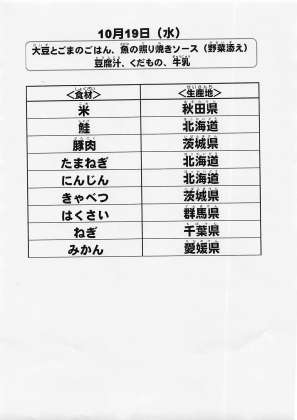 10月19日（水）
大豆とごまのごはん、魚の照り焼きソース（野菜添え）
豆腐汁、くだもの、牛乳
＜食材＞ ＜生産地＞
米 秋田県
鮭 北海道
豚肉 茨城県
たまねぎ 北海道
にんじん 北海道
きゃべつ 茨城県
はくさい 群馬県
ねぎ 千葉県
みかん 愛媛県